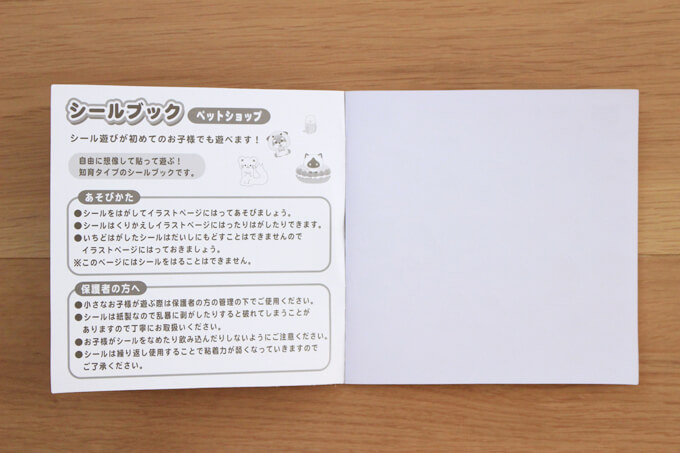 シールブック ペットショップ
シール遊びが初めてのお子様でも遊べます！
自由に想像して貼って遊ぶ！
知育タイプのシールブックです。
あそびかた
●シールをはがしてイラストページにはってあそびましょう。
●シールはくりかえしイラストページにはったりはがしたりできます。
●いちどはがしたシールはだいしにもどすことはできませんので
イラストページにはっておきましょう。
※このページにはシールをはることはできません。
保護者の方へ
●小さなお子様が遊ぶ際は保護者の方の管理の下でご使用ください。
●シールは紙製なので乱暴に剥がしたりすると破れてしまうことが
ありますので丁寧にお取扱いください。
●お子様がシールをなめたり飲み込んだりしないようにご注意ください。
●シールは繰り返し使用することで粘着力が弱くなっていきますので
ご了承ください。